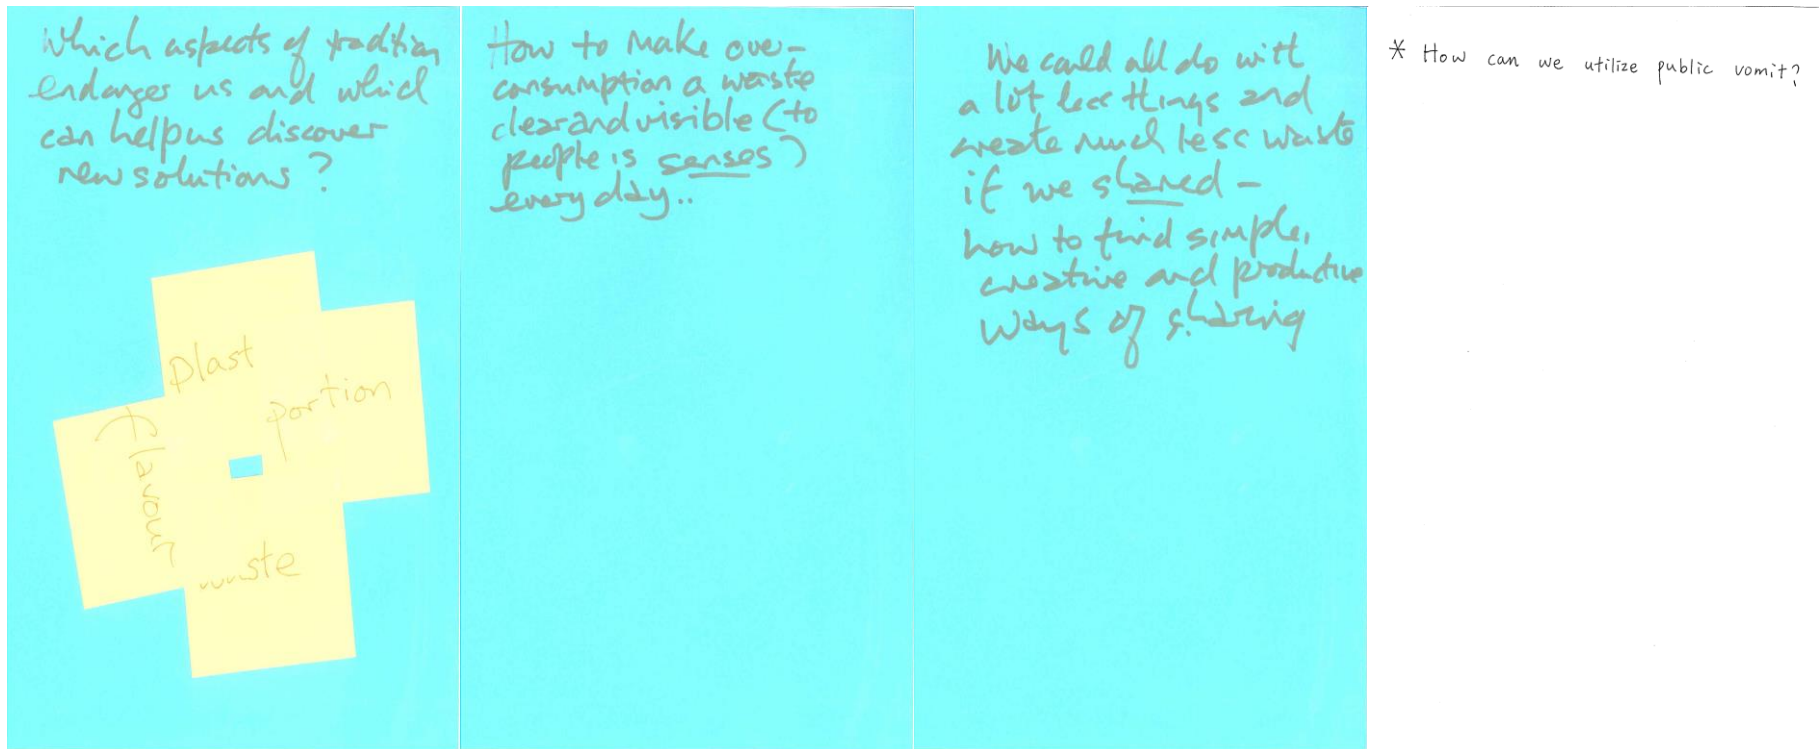 Which aspects of tradition
endanger us and which
can help us discover
new solutions?
plast
portion
flavour
waste
How to make over-
consumption a waste
clear and visible (to
people is senses)
every day..
We could all do with
a lot less things and
create much less waste
if we shared -
how to find simple,
creative and productive
ways of sharing
* How can we utilize public vomit?